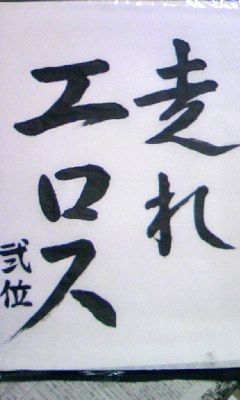 走れ
エロス
弐位